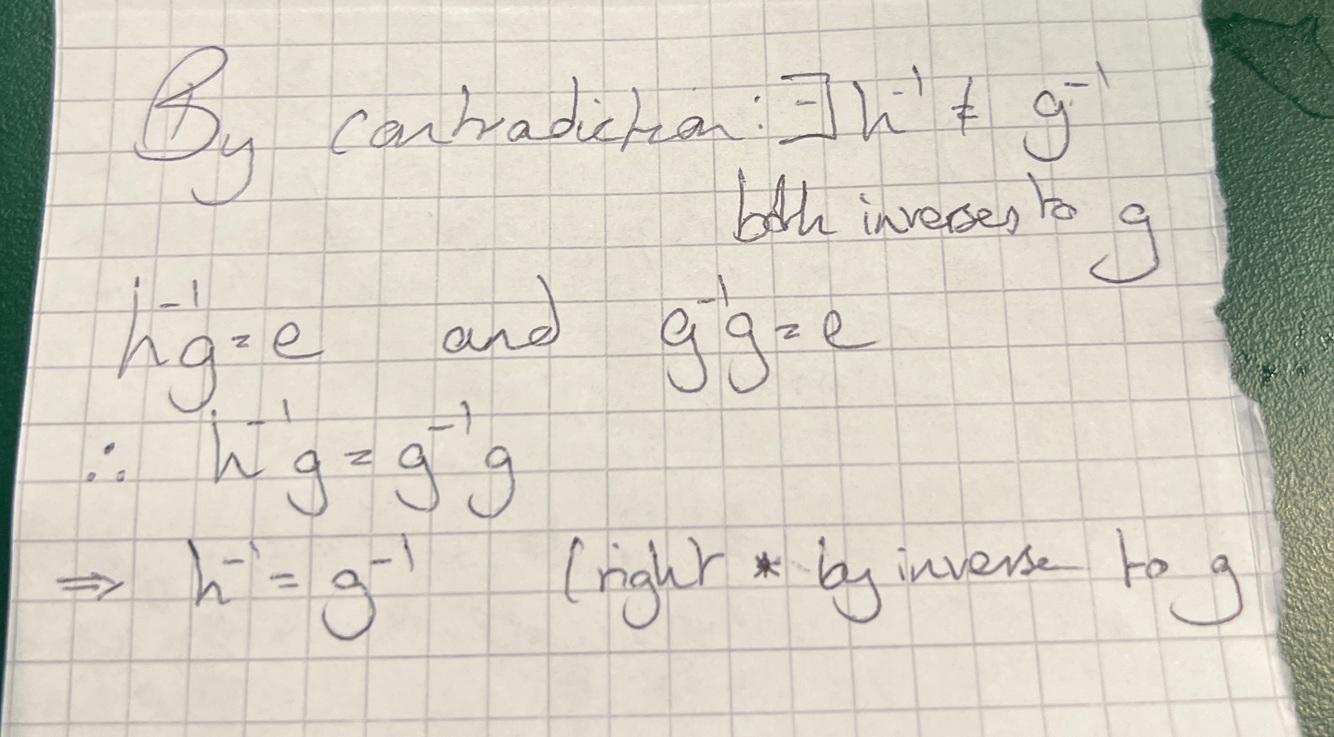 By contradiction: ∃ h⁻¹ ≠ g⁻¹
both inverses to g
h⁻¹g = e and g⁻¹g = e
∴ h⁻¹g = g⁻¹g
⇒ h⁻¹ = g⁻¹ (right * by inverse to g